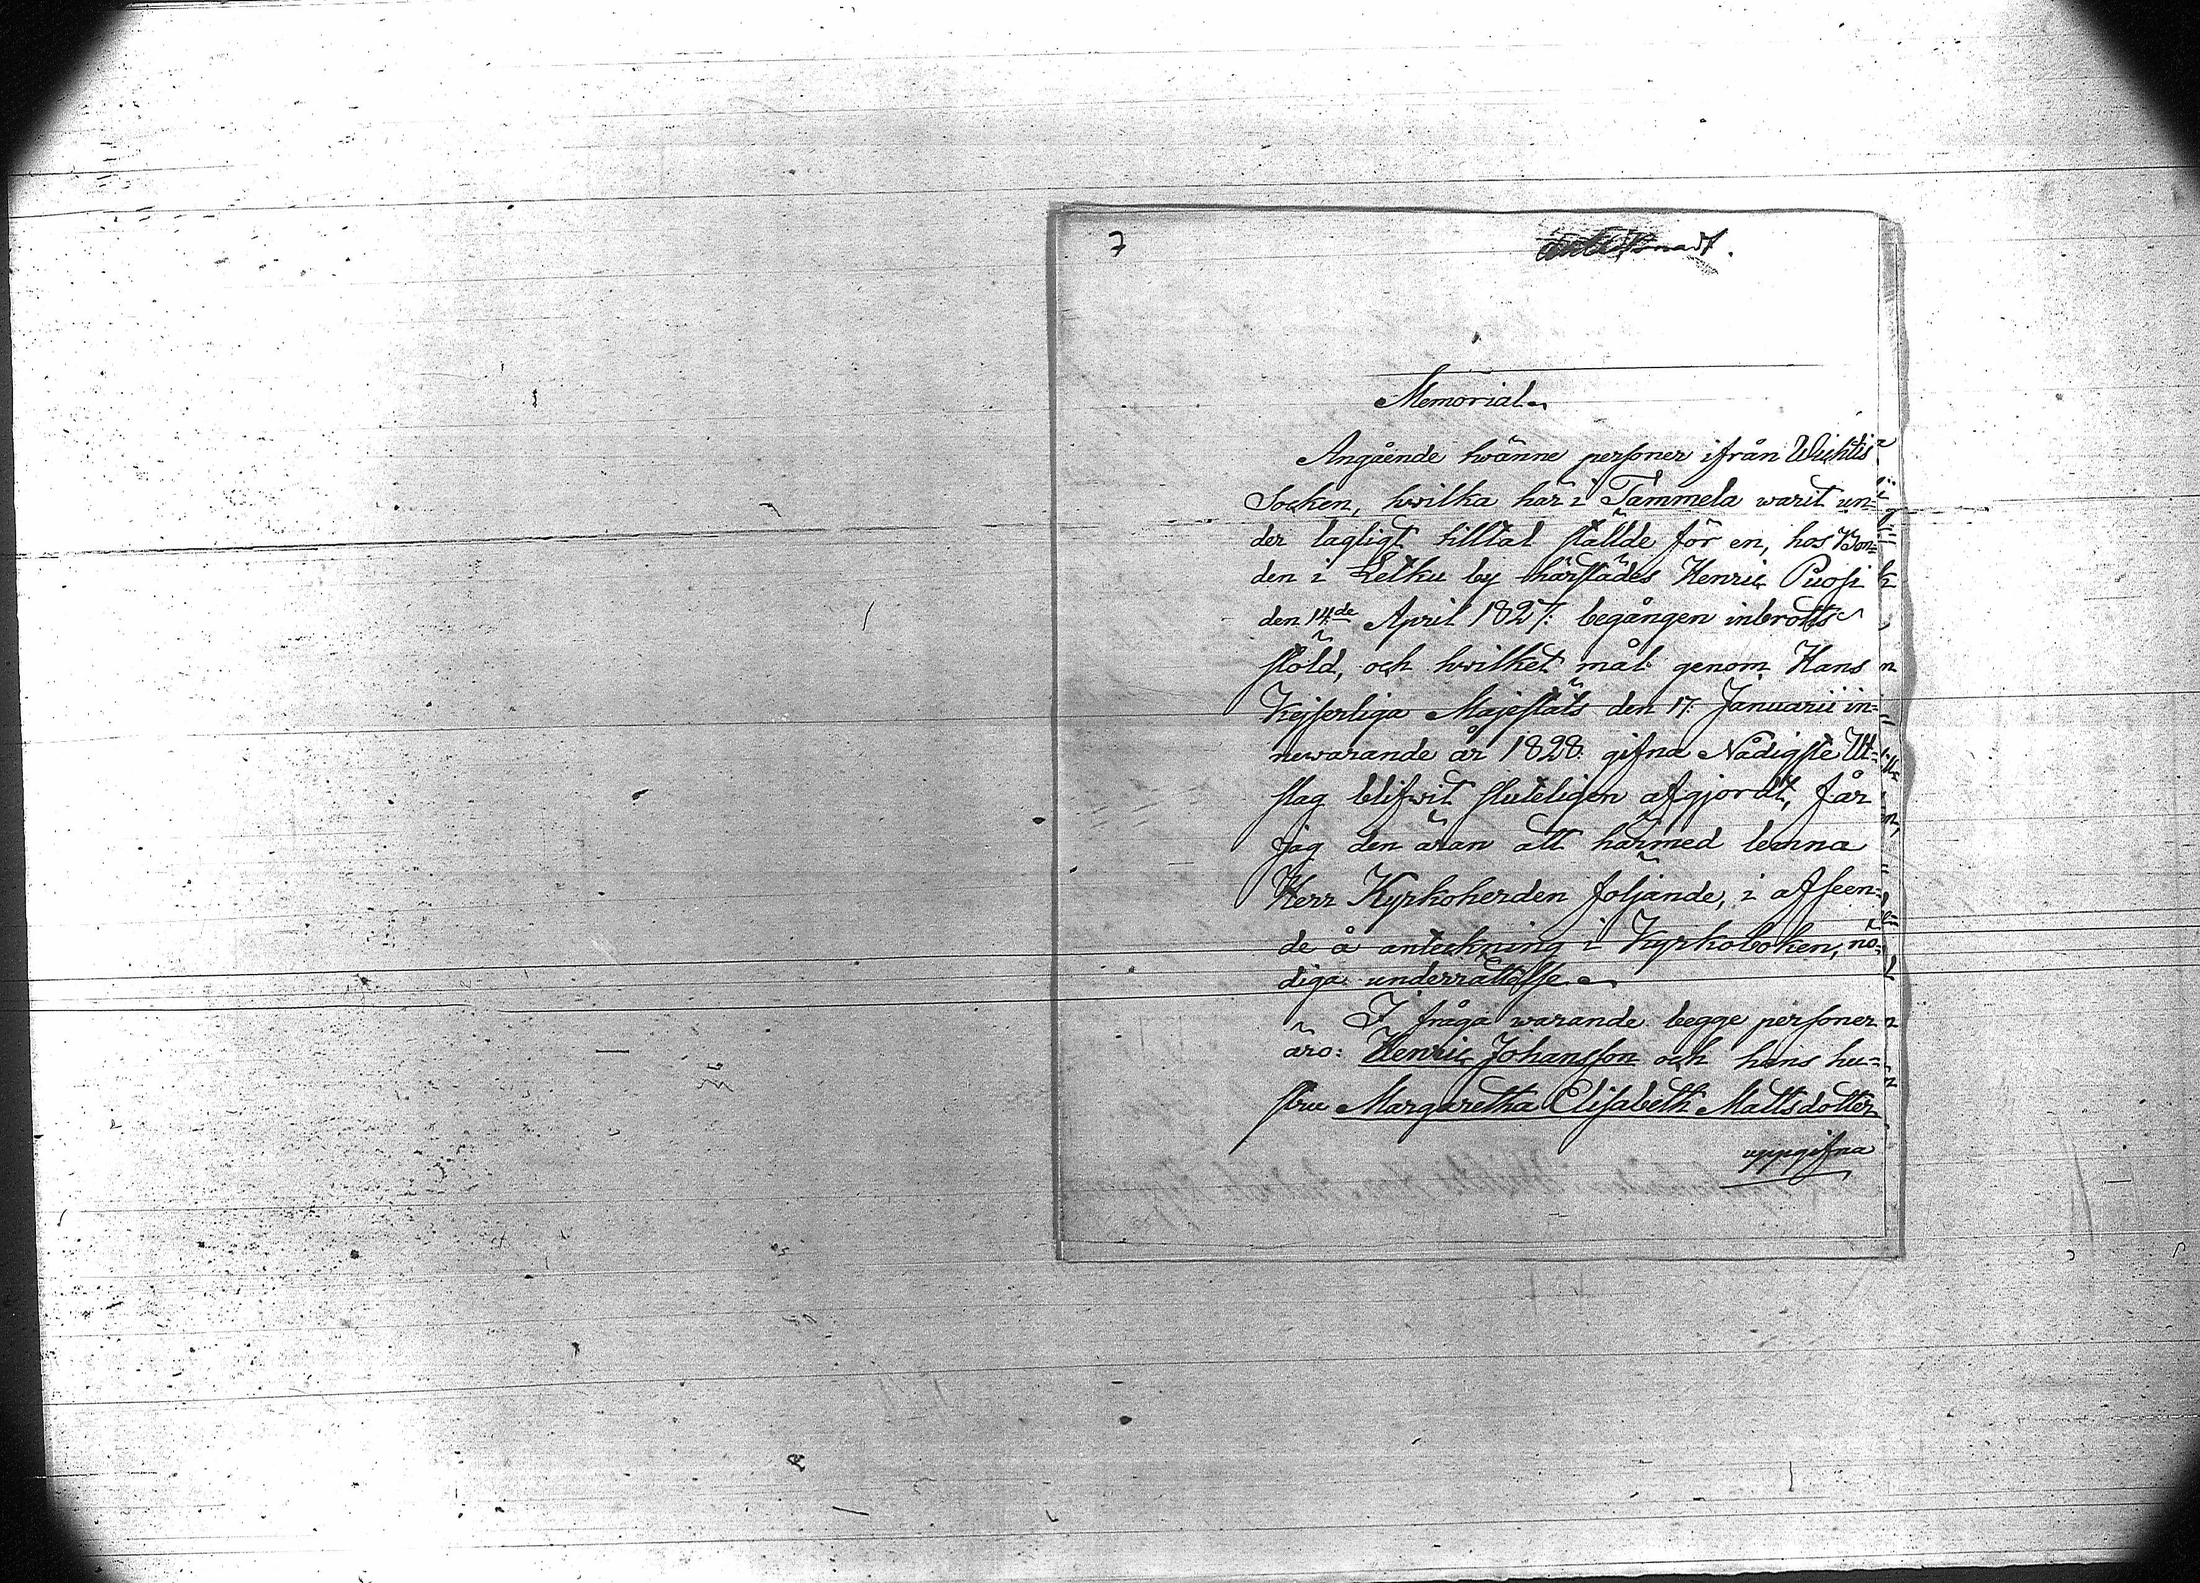 7
Memorial.
Angående twänne personer ifrån Wichtis
Socken, hwilka här i Tammela warit un=
der lagligt tilltal stälde för en, hos Bon=
den i Letku by härstädes Henric Puosi
den 14de April 1827. begången inbrotts
stöld, och hwilket mål genom Hans
Kejserliga Majestäts den 17. Januarii in=
newarande år 1828. gifna Nådigste Ut=
slag blifwit sluteligen afgjordt, får
jag den äran att härmed lemna
Herr Kyrkoherden följande, i afseen=
de å anteckning i Kyrkoboken, nö=
diga underrättelse.
I fråga warande begge personer
äro: Henric Johansson och hans hu=
stru Margaretha Elisabeth Mattsdotter
uppgifna